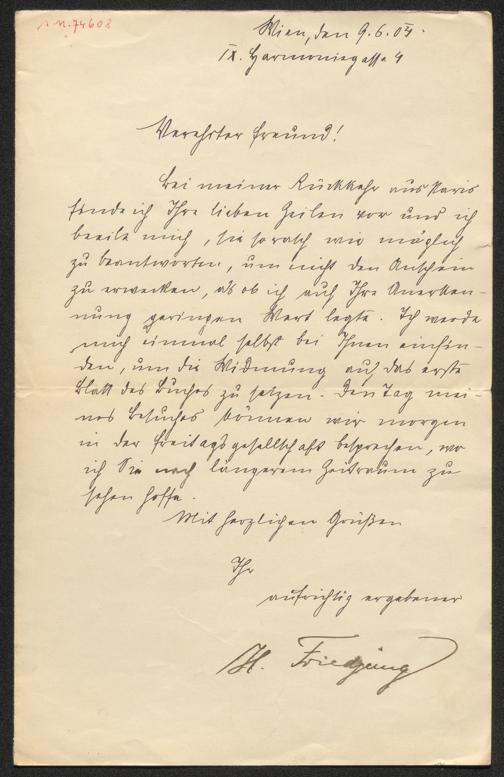 I.N. 74608
Wien, den 9.6.04.
IX. Harmoniegasse 4
Verehrter Freund!
Bei meiner Rückkehr aus Paris
finde ich Ihre lieben Zeilen vor und ich
beeile mich, sie so rasch wie möglich
zu beantworten, um nicht den Anschein
zu erwecken, als ob ich auf Ihre Anerken-
nung geringen Wert legte. Ich werde
mich einmal selbst bei Ihnen einfin-
den, um die Widmung auf das erste
Blatt des Buches zu setzen. Den Tag mei-
nes Besuches können wir morgen
in der Freitagsgesellschaft besprechen, wo
ich Sie nach längerem Zeitraum zu
sehen hoffe.
Mit herzlichen Grüßen
Ihr
aufrichtig ergebener
H. Friedjung